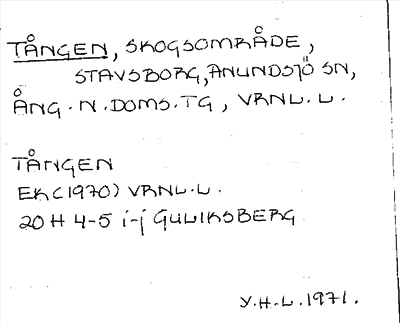 TÅNGEN, SKOGSOMRÅDE,
STAVSBORG, ANUNDSJÖ SN,
ÅNG. N. DOMS. TG, VRNL. L.
TÅNGEN
EK (1970) VRNL. L.
20 H 4-5 i-j GULIKSBERG
Y. H-L. 1971.